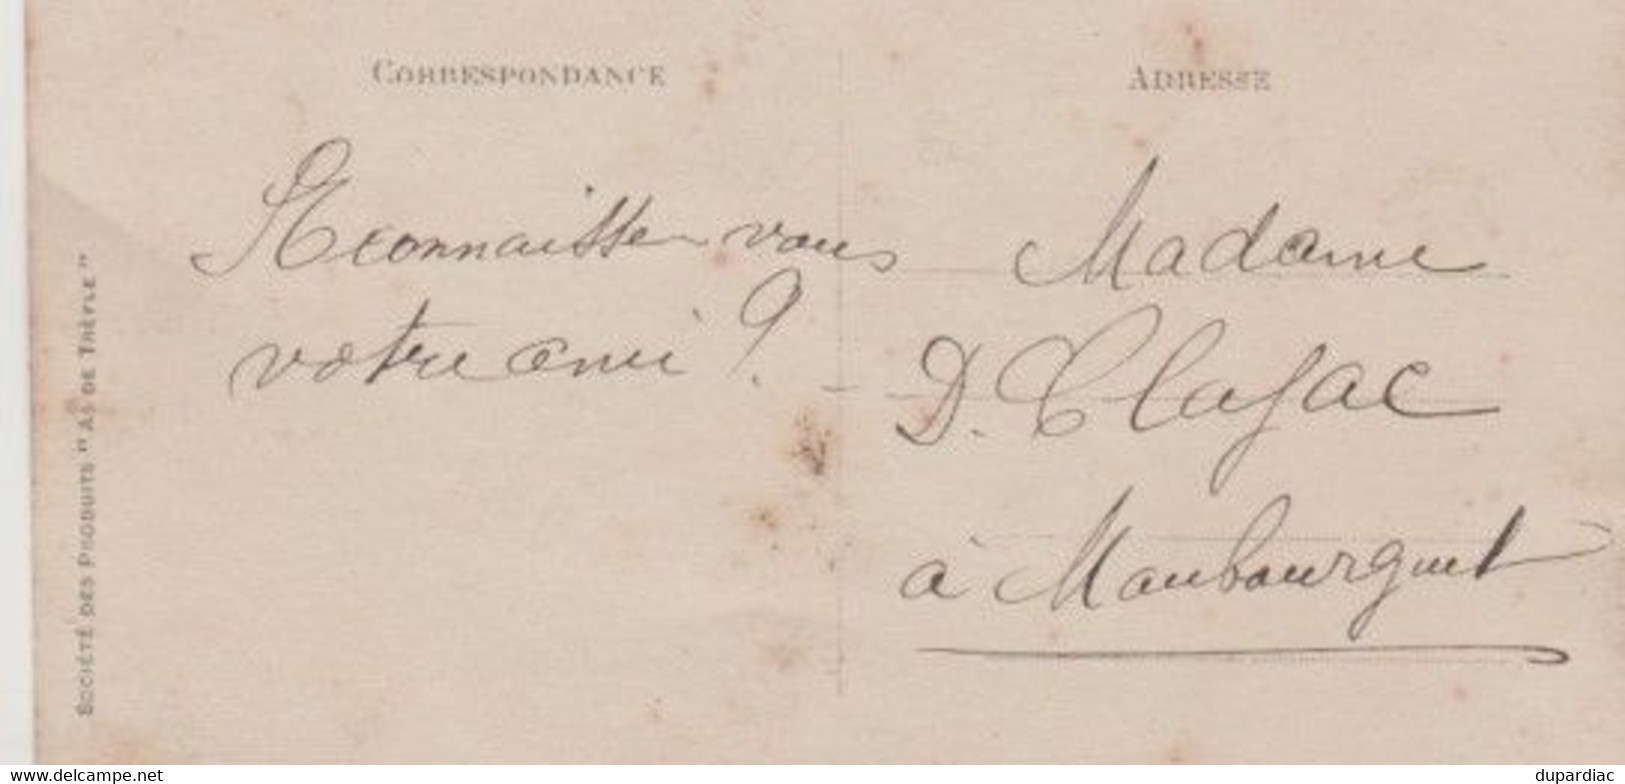 CORRESPONDANCE
ADRESSE
Reconnaissez vous
votre ami ?
Madame
D. Clajac
à Maubourguet
SOCIÉTÉ DES PRODUITS "AS DE TRÈFLE"
www.delcampe.net
dupardiac